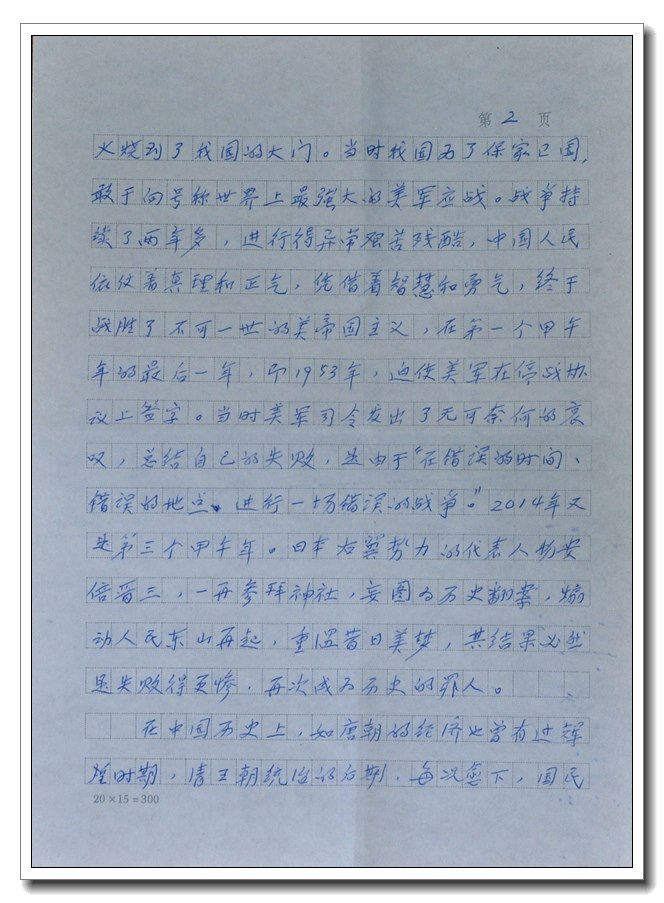 第 2 页
火烧到了我国的大门。当时我国为了保家卫国,
敢于向号称世界上最强大的美军应战。战争持
续了两年多，进行得异常艰苦残酷，中国人民
依仗着真理和正气，凭借着智慧和勇气，终于
战胜了不可一世的美帝国主义，在第一个甲午
年的最后一年，即1953年，迫使美军在停战协
议上签字。当时美军司令发出了无可奈何的哀
叹，总结自己的失败，是由于“在错误的时间、
错误的地点、进行一场错误的战争。”2014年又
是第三个甲午年。日本右翼势力的代表人物安
倍晋三，一再参拜神社，妄图为历史翻案，煽
动人民东山再起，重温昔日美梦，其结果必然
是失败得更惨，再次成为历史的罪人。
在中国历史上，如唐朝的经济也曾有过辉
煌时期，清王朝统治的后期，每况愈下，国民
20×15=300